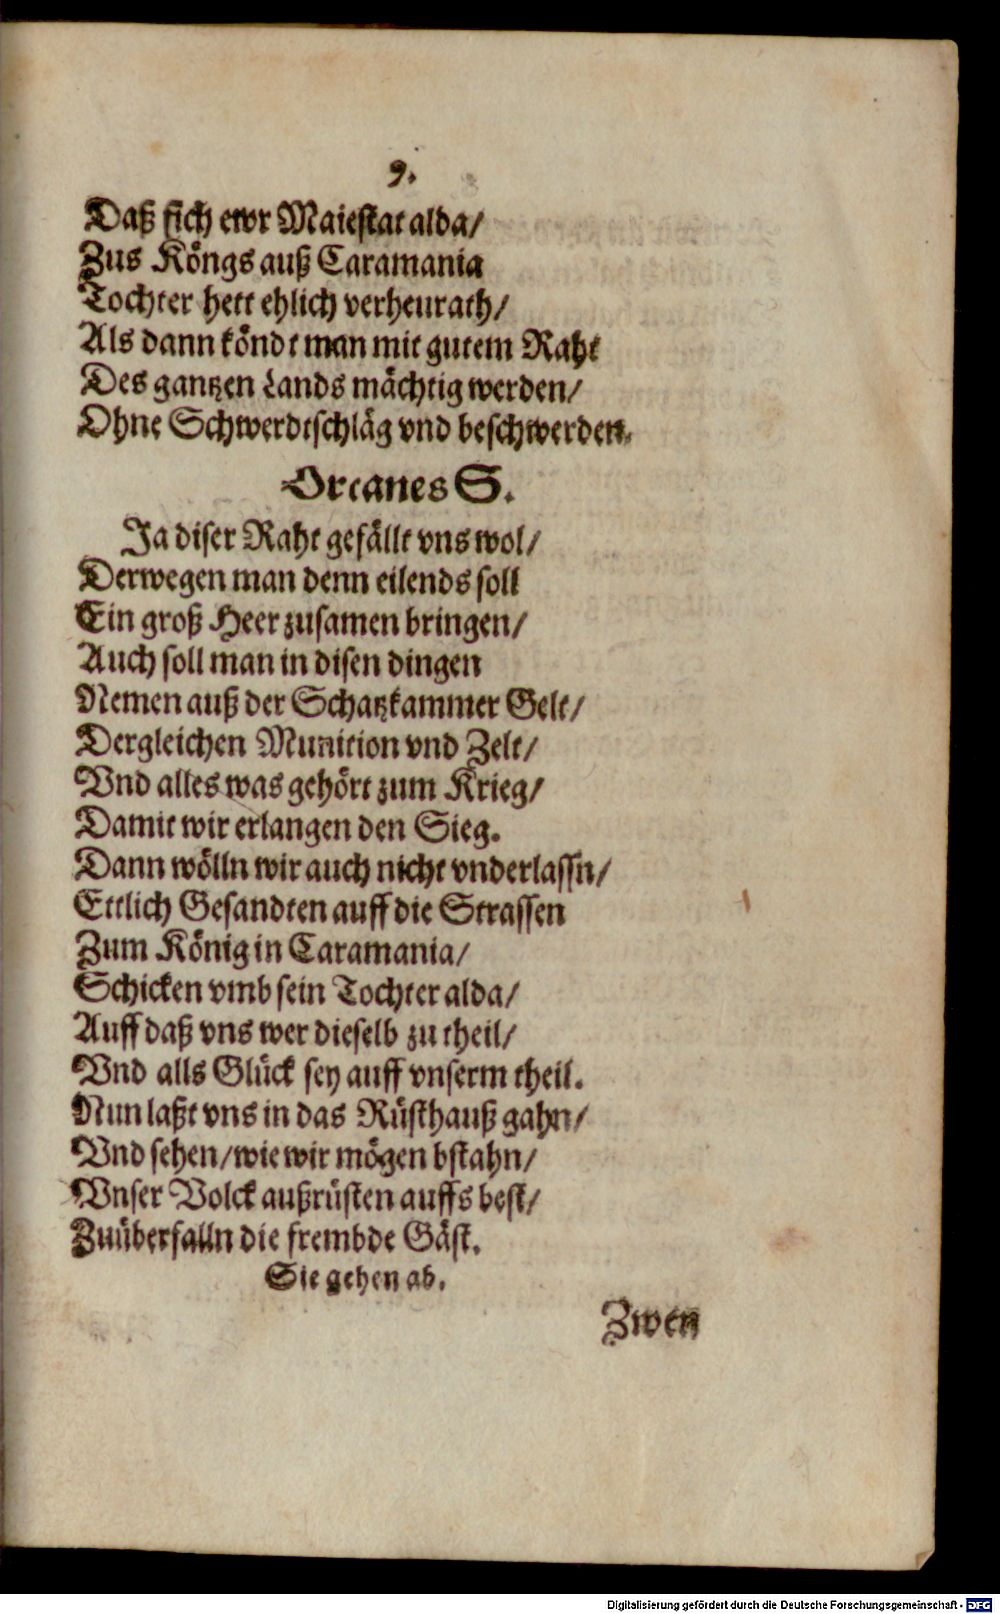 9.
Daß sich ewr Maiestat alda/
Zus Köngs auß Caramania
Tochter hett ehlich verheurath/
Als dann köndt man mit gutem Raht
Des gantzen Lands mächtig werden/
Ohne Schwerdtschläg vnd beschwerden.
Orcanes S.
Ja diser Raht gefällt vns wol/
Derwegen man denn eilends soll
Ein groß Heer zusamen bringen/
Auch soll man in disen dingen
Nemen auß der Schatzkammer Gelt/
Dergleichen Munition vnd Zelt/
Vnd alles was gehört zum Krieg/
Damit wir erlangen den Sieg.
Dann wölln wir auch nicht vnderlassn/
Ettlich Gesandten auff die Strassen
Zum König in Caramania/
Schicken vmb sein Tochter alda/
Auff daß vns wer dieselb zu theil/
Vnd alls Glück sey auff vnserm theil.
Nun laßt vns in das Rüsthauß gahn/
Vnd sehen/ wie wir mögen bstahn/
Vnser Volck außrüsten auffs best/
Zuüberfalln die frembde Gäst.
Sie gehen ab.
Zwen
Digitalisierung gefördert durch die Deutsche Forschungsgemeinschaft - DFG